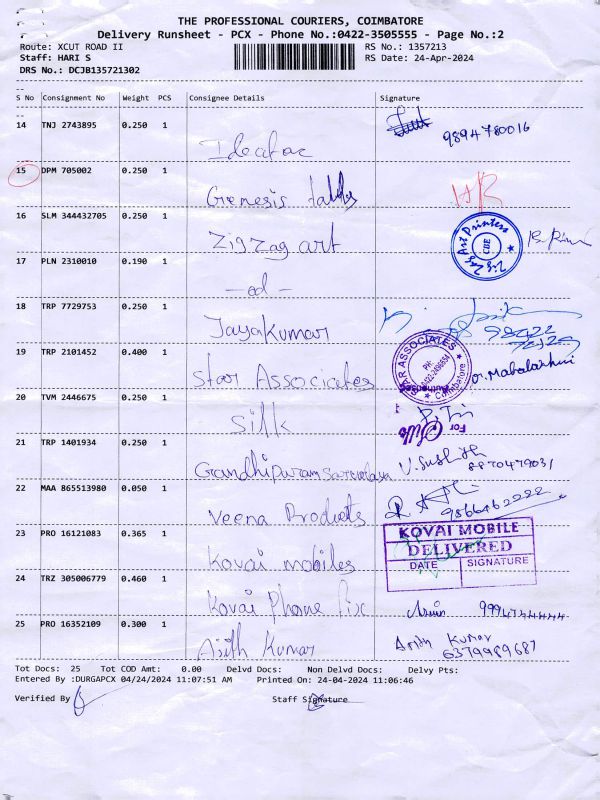 THE PROFESSIONAL COURIERS, COIMBATORE
Delivery Runsheet - PCX - Phone No.:0422-3505555 - Page No.:2
Route: XCUT ROAD II RS No.: 1357213
Staff: HARI S RS Date: 24-Apr-2024
DRS No.: DCJB135721302
S No Consignment No Weight PCS Consignee Details Signature
14 TNJ 2743895 0.250 1
9894780016
15 DPM 705002 0.250 1
Genesis
HR
16 SLM 344432705 0.250 1
Zigzag art
Zig Zag Art Printers CBE
17 PLN 2310010 0.190 1
18 TRP 7729753 0.250 1
Jayakumar
19 TRP 2101452 0.400 1
Star Associates
STAR ASSOCIATES PH: 0422-2496854 Coimbatore
Authorised
20 TVM 2446675 0.250 1
Silk
For Silk
21 TRP 1401934 0.250 1
Gandhipuram
V. Sushith
8870479031
22 MAA 865513980 0.050 1
Veena Products
9866462222
23 PRO 16121083 0.365 1
Kovai mobiles
KOVAI MOBILE
DELIVERED
DATE SIGNATURE
24 TRZ 305006779 0.460 1
Kovai Phone fix
25 PRO 16352109 0.300 1
Ajith Kumar
Kumar
6379989687
Tot Docs: 25 Tot COD Amt: 0.00 Delvd Docs: Non Delvd Docs: Delvy Pts:
Entered By :DURGAPCX 04/24/2024 11:07:51 AM Printed On: 24-04-2024 11:06:46
Verified By Staff Signature